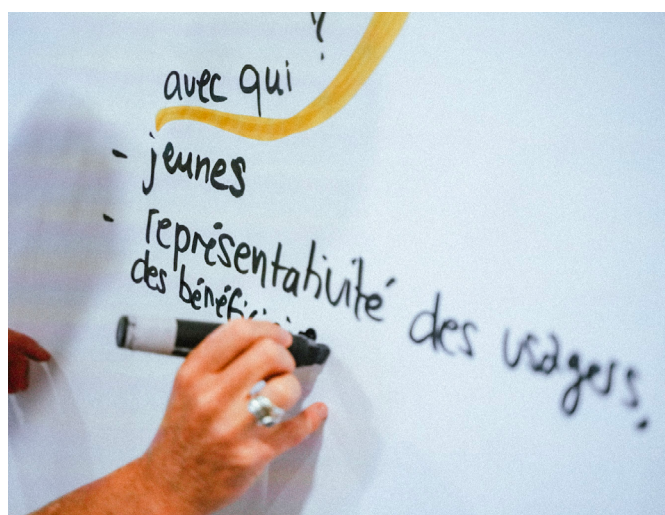 ?
avec qui
- jeunes
- représentativité des usagers,
des